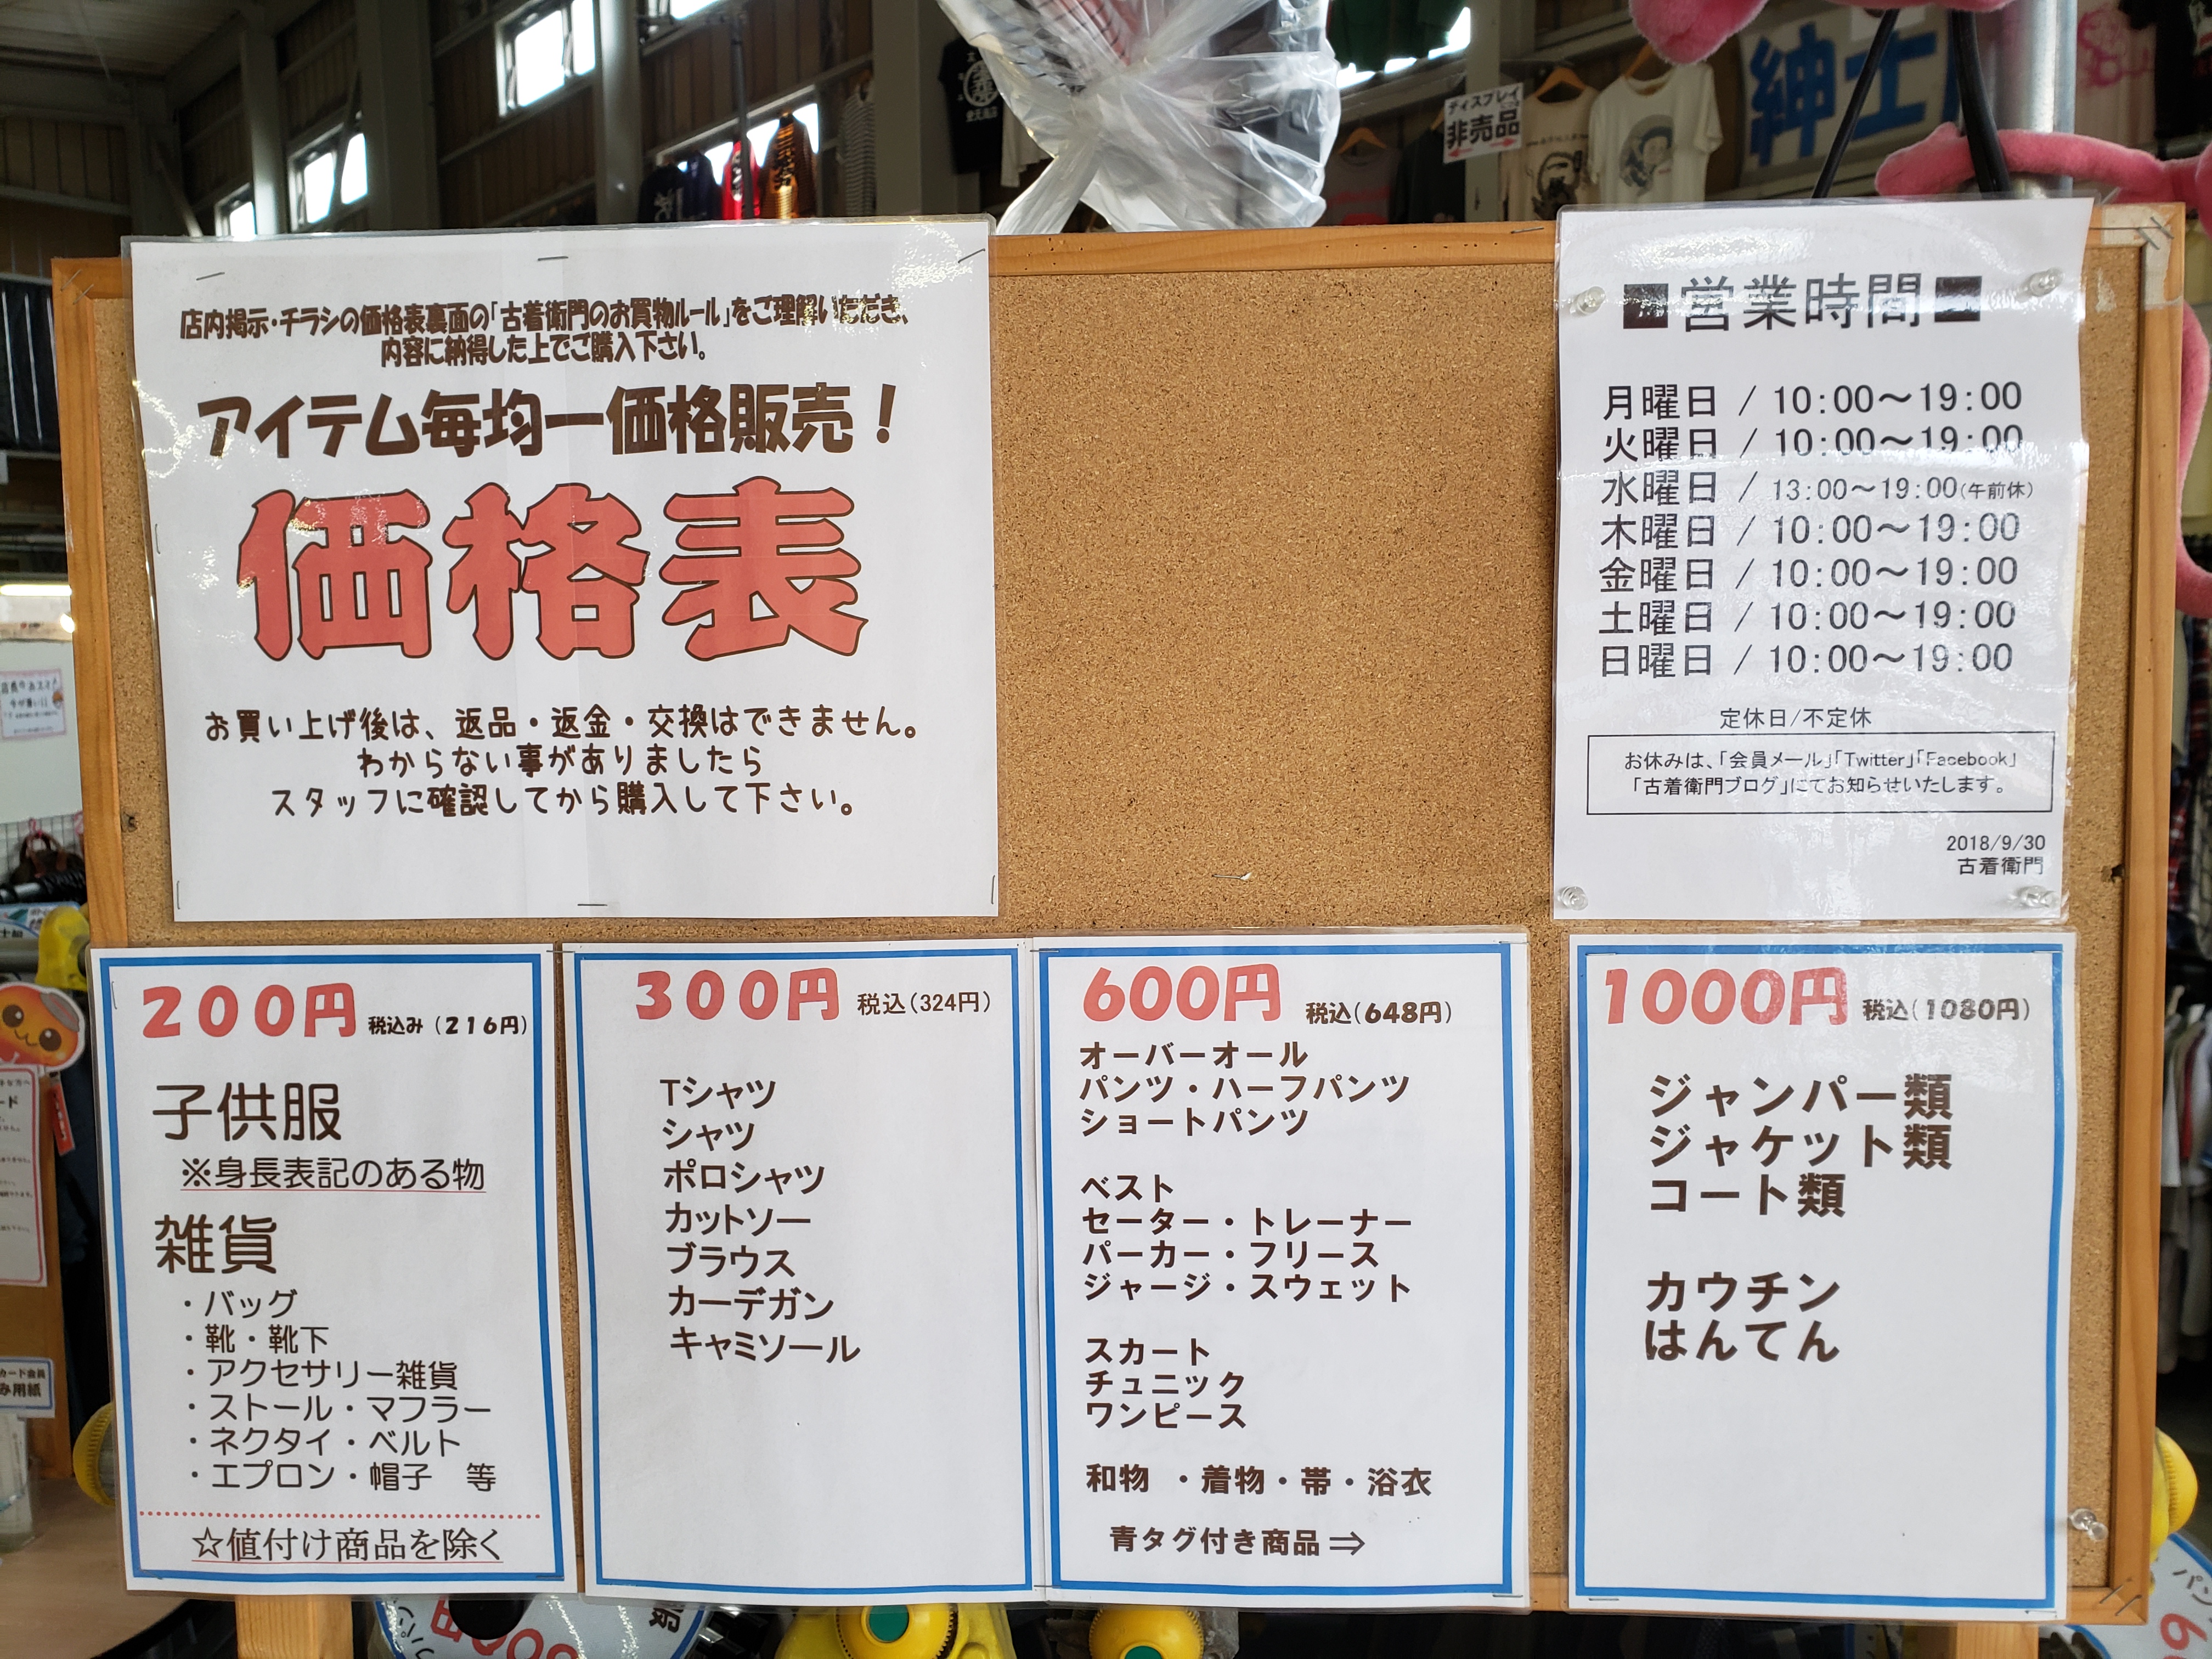 ディスプレイ
非売品
紳士
店内掲示・チラシの価格表裏面の「古着衛門のお買物ルール」をご理解いただき、
内容に納得した上でご購入下さい。
アイテム毎均一価格販売！
価格表
お買い上げ後は、返品・返金・交換はできません。
わからない事がありましたら
スタッフに確認してから購入して下さい。
■営業時間■
月曜日 / 10:00～19:00
火曜日 / 10:00～19:00
水曜日 / 13:00～19:00(午前休)
木曜日 / 10:00～19:00
金曜日 / 10:00～19:00
土曜日 / 10:00～19:00
日曜日 / 10:00～19:00
定休日/不定休
お休みは、「会員メール」「Twitter」「Facebook」
「古着衛門ブログ」にてお知らせいたします。
2018/9/30
古着衛門
200円 税込み（216円）
子供服
※身長表記のある物
雑貨
・バッグ
・靴・靴下
・アクセサリー雑貨
・ストール・マフラー
・ネクタイ・ベルト
・エプロン・帽子　等
☆値付け商品を除く
300円 税込（324円）
Tシャツ
シャツ
ポロシャツ
カットソー
ブラウス
カーデガン
キャミソール
600円 税込（648円）
オーバーオール
パンツ・ハーフパンツ
ショートパンツ
ベスト
セーター・トレーナー
パーカー・フリース
ジャージ・スウェット
スカート
チュニック
ワンピース
和物　・着物・帯・浴衣
青タグ付き商品⇒
1000円 税込（1080円）
ジャンパー類
ジャケット類
コート類
カウチン
はんてん